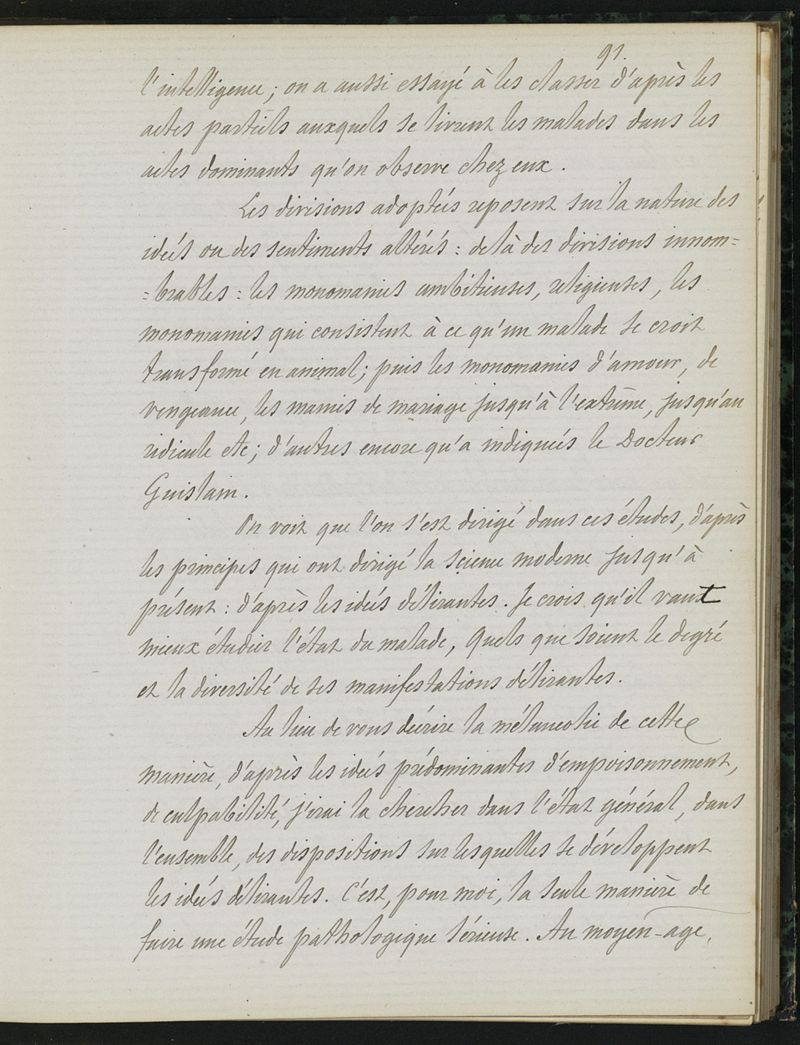 91.
l'intelligence; on a aussi essayé à les classer d'après les
actes partiels auxquels se livrent les malades dans les
actes dominants qu'on observe chez eux.
Les divisions adoptées reposent sur la nature des
idées ou des sentiments altérés: de là des divisions innom=
=brables: les monomanies ambitieuses, religieuses, les
monomanies qui consistent à ce qu'un malade se croit
transformé en animal; puis les monomanies d'amour, de
vengeance, les manies de mariage jusqu'à l'extrême, jusqu'au
ridicule etc; d'autres encore qu'a indiqués le Docteur
Guislain.
On voit que l'on s'est dirigé dans ces études, d'après
les principes qui ont dirigé la science moderne jusqu'à
présent: d'après les idées délirantes. Je crois qu'il vaut
mieux étudier l'état du malade, quels que soient le degré
et la diversité de ses manifestations délirantes.
Au lieu de vous décrire la mélancolie de cette
manière, d'après les idées prédominantes d'empoisonnement,
de culpabilité, j'irai la chercher dans l'état général, dans
l'ensemble, des dispositions sur lesquelles se développent
les idées délirantes. C'est, pour moi, la seule manière de
faire une étude pathologique sérieuse. Au moyen-age,